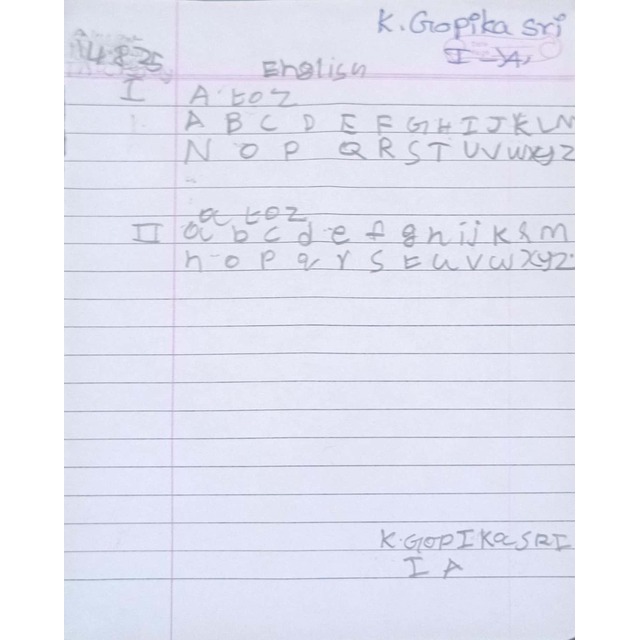 K. Gopika Sri
I - A,
14.8.25
English
I A to Z
A B C D E F G H I J K L M
N O P Q R S T U V W X Y Z
a to z
II a b c d e f g h i j k l m
n o p q r s t u v w x y z.
K. GOPIKa SRI
I A